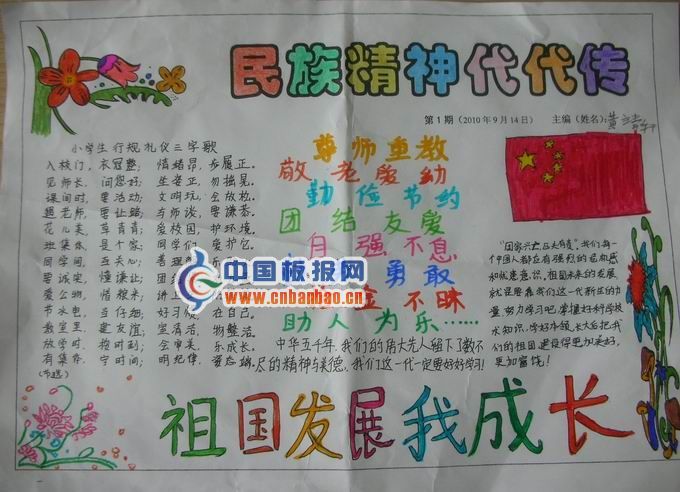 民族精神代代传
第1期(2010年9月14日) 主编(姓名):黄
小学生行规礼仪三字歌
入校门,衣冠整; 情绪昂,步履正。
见师长,问您好; 坐姿正,勿摇晃。
课间时,要活动; 文明玩,全放松。
遇老师,要让路; 与师谈,要谦恭。
花儿美,草青青; 爱校园,护环境。
班集体,是个家; 同学们,爱护它。
同学间,互关心; 善理解
要诚实,懂谦让; 团
爱公物,惜粮米; 讲卫
节水电,在自己。
教室里,建友谊; 室清洁,物整洁。
放学时,按时到; 会审美,乐成长。
有集体,守时间; 明纪律,
(节选)
尊师重教
敬老爱幼
勤俭节约
团结友爱
自强不息
勇敢
金不昧
助人为乐……
中华五千年,我们的伟大先人留下了数不
尽的精神与美德,我们这一代一定要好好学习!
"国家兴亡,匹夫有责",我们每一
个中国人都应有强烈的自尊感
和忧患意识,祖国未来的发展
就是要靠我们这一代新生的力
量,努力学习吧,掌握好科学技
术知识,学好本领,长大后把我
们的祖国建设得更加美好,
更加富饶!
中国板报网
www.cnbanbao.cn
祖国发展我成长